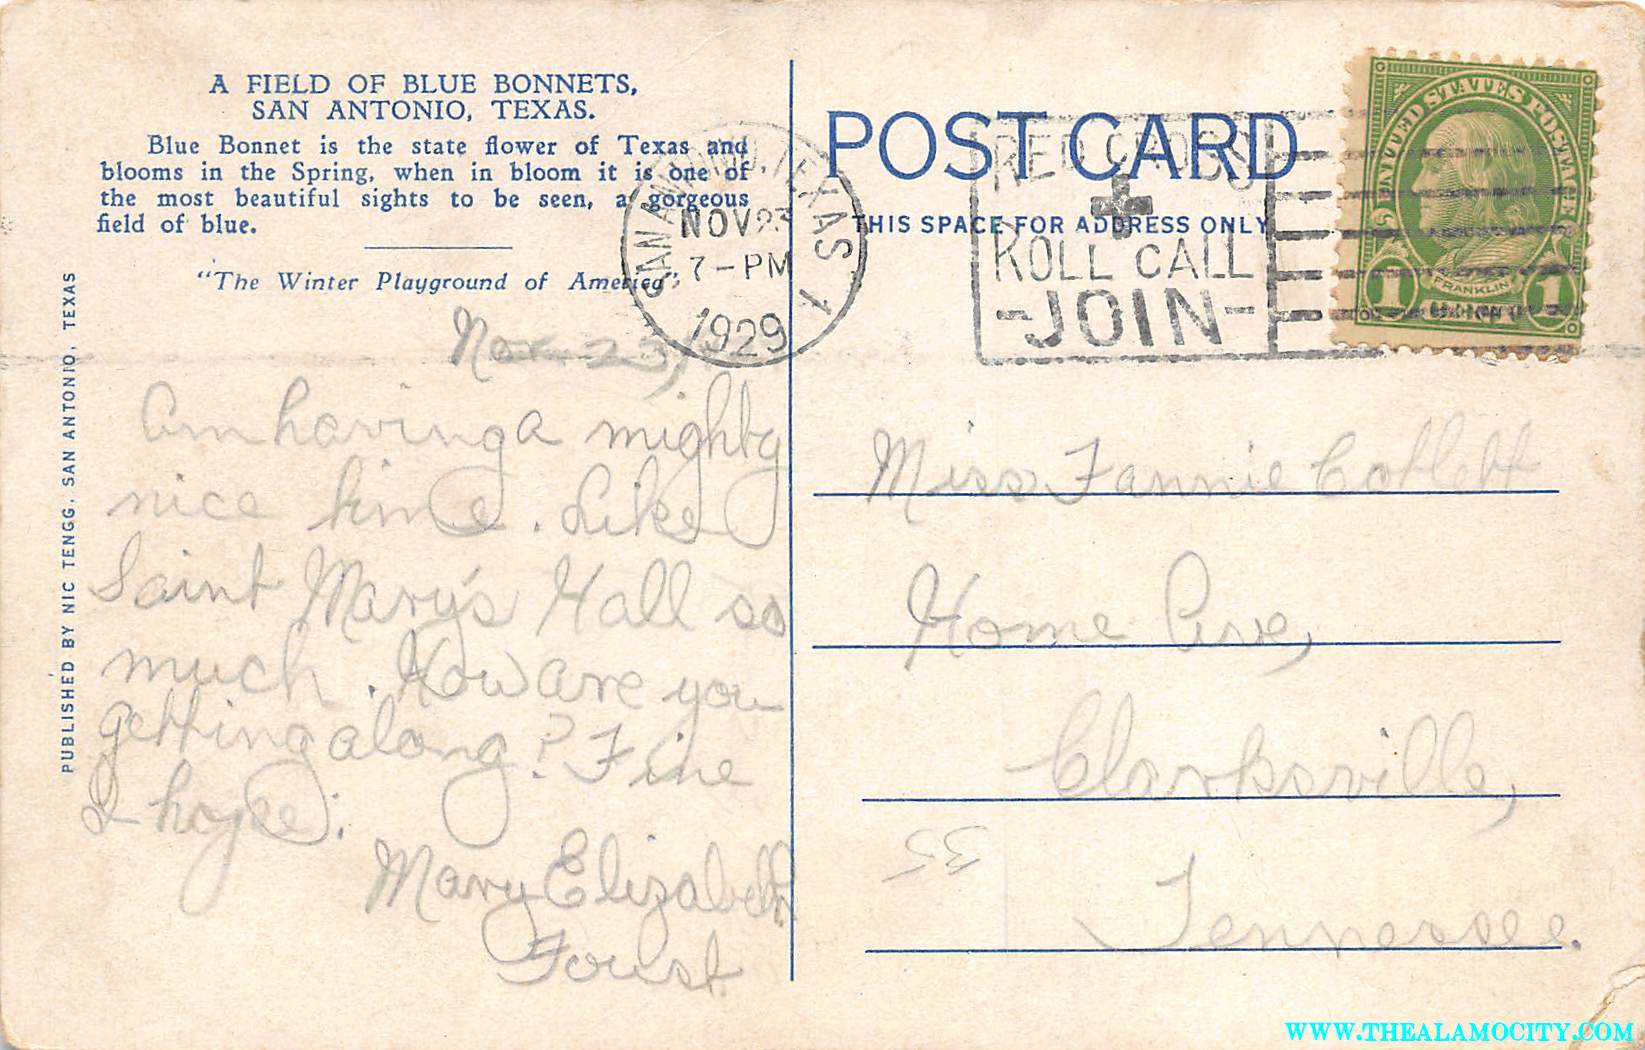 A FIELD OF BLUE BONNETS,
SAN ANTONIO, TEXAS.
Blue Bonnet is the state flower of Texas and
blooms in the Spring, when in bloom it is one of
the most beautiful sights to be seen, a gorgeous
field of blue.
"The Winter Playground of America"
PUBLISHED BY NIC TENGG, SAN ANTONIO, TEXAS
Nov 23,
Am having a mighty
nice time. Like
Saint Mary's Hall so
much. How are you
getting along? Fine
I hope.
Mary Elizabeth
Foust
SAN ANTONIO, TEXAS 1
NOV 23
7-PM
1929
POST CARD
THIS SPACE FOR ADDRESS ONLY
RED CROSS
ROLL CALL
-JOIN-
UNITED STATES POSTAGE
FRANKLIN
1 CENT 1
Miss Fannie Cotlett
Home Ave,
Clarksville,
35
Tennessee.
WWW.THEALAMOCITY.COM